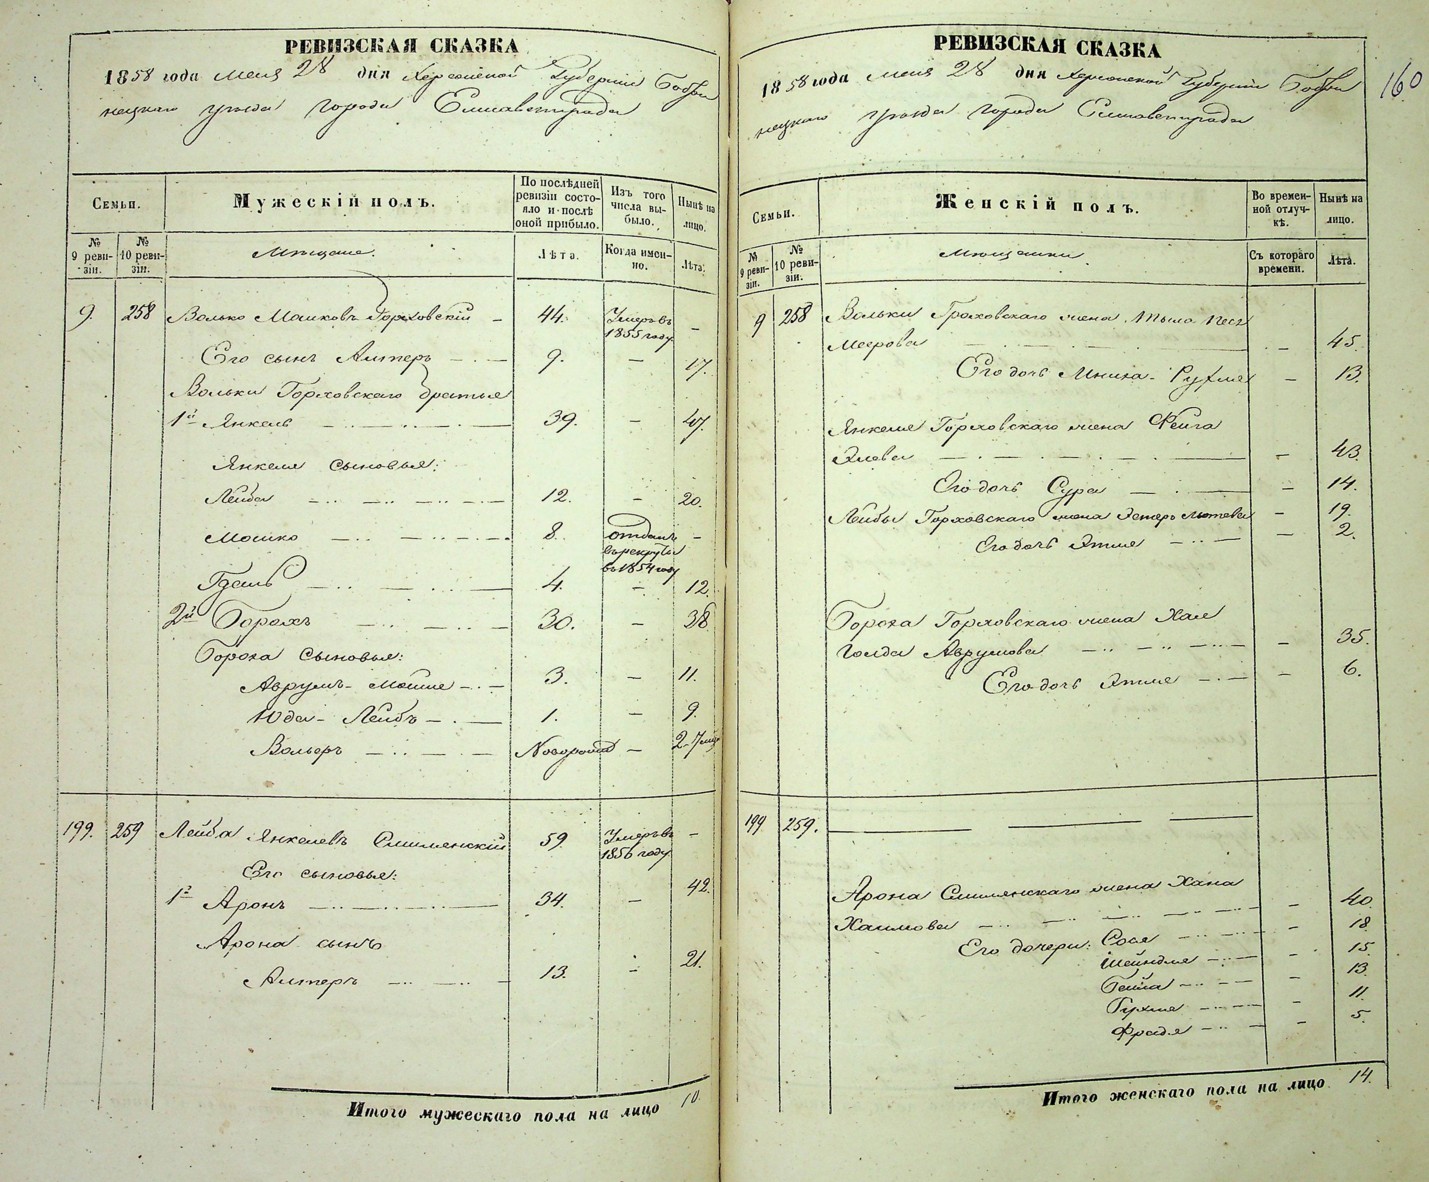 РЕВИЗСКАЯ СКАЗКА
1858 года Мая 28 дня Херсонской Губернiи Бобри
нецкаго уѣзда города Елисаветграда
Семьи.
Мужескiй полъ.
По послѣдней ревизiи состояло и послѣ оной прибыло.
Изъ того числа выбыло.
Нынѣ на лицо.
№ 9 ревизiи.
№ 10 ревизiи.
Мѣщане.
Лѣта.
Когда именно.
Лѣта.
9. 258 Волько Мошковъ Гороховскiй – 44. Умеръ въ 1855 году –
Его сынъ Алтеръ – 9. – 17.
Вольки Гороховскаго братья
1й Янкель – 39. – 47.
Янкеля сыновья:
Лейба – 12. – 20.
Мошко – 8. отданъ въ рекруты въ 1854 году –
Гдаль – 4. – 12.
2й Борохъ – 30. – 38
Бороха сыновья:
Аврумъ-Мойше – 3. – 11.
Юда-Лейбъ – 1. – 9.
Вольфъ – Новорожд – 2-7 мѣс
199. 259 Лейба Янкелевъ Смилянскiй 59 Умеръ въ 1856 году –
Его сыновья:
1й Аронъ – 34. – 42.
Арона сынъ
Алтеръ – 13. – 21.
Итого мужескаго пола на лицо 10.
160
РЕВИЗСКАЯ СКАЗКА
1858 года Мая 28 дня Херсонской Губернiи Бобри
нецкаго уѣзда города Елисаветграда
Семьи.
Женскiй полъ.
Во временной отлучкѣ.
Нынѣ на лицо.
№ 9 ревизiи.
№ 10 ревизiи.
Мѣщанки.
Съ котораго времени.
Лѣта.
9 258 Вольки Гороховскаго жена
Меерова – 45.
Его дочь Рухля – 13.
Янкеля Гороховскаго жена Фейга
Элева – 43.
Его дочь Сура – 14.
Лейбы Гороховскаго жена Эстеръ – 19.
Его дочь Этля – 2.
Бороха Гороховскаго жена Хая
Голда Аврумова – 35.
Его дочь Этля – 6.
199 259. –
Арона Смилянскаго жена Хана
Хаимова – 40
Его дочери: Сося – 18.
Шейндля – 15.
Бейла – 13.
Рухля – 11.
Фрадя – 5.
Итого женскаго пола на лицо 14.